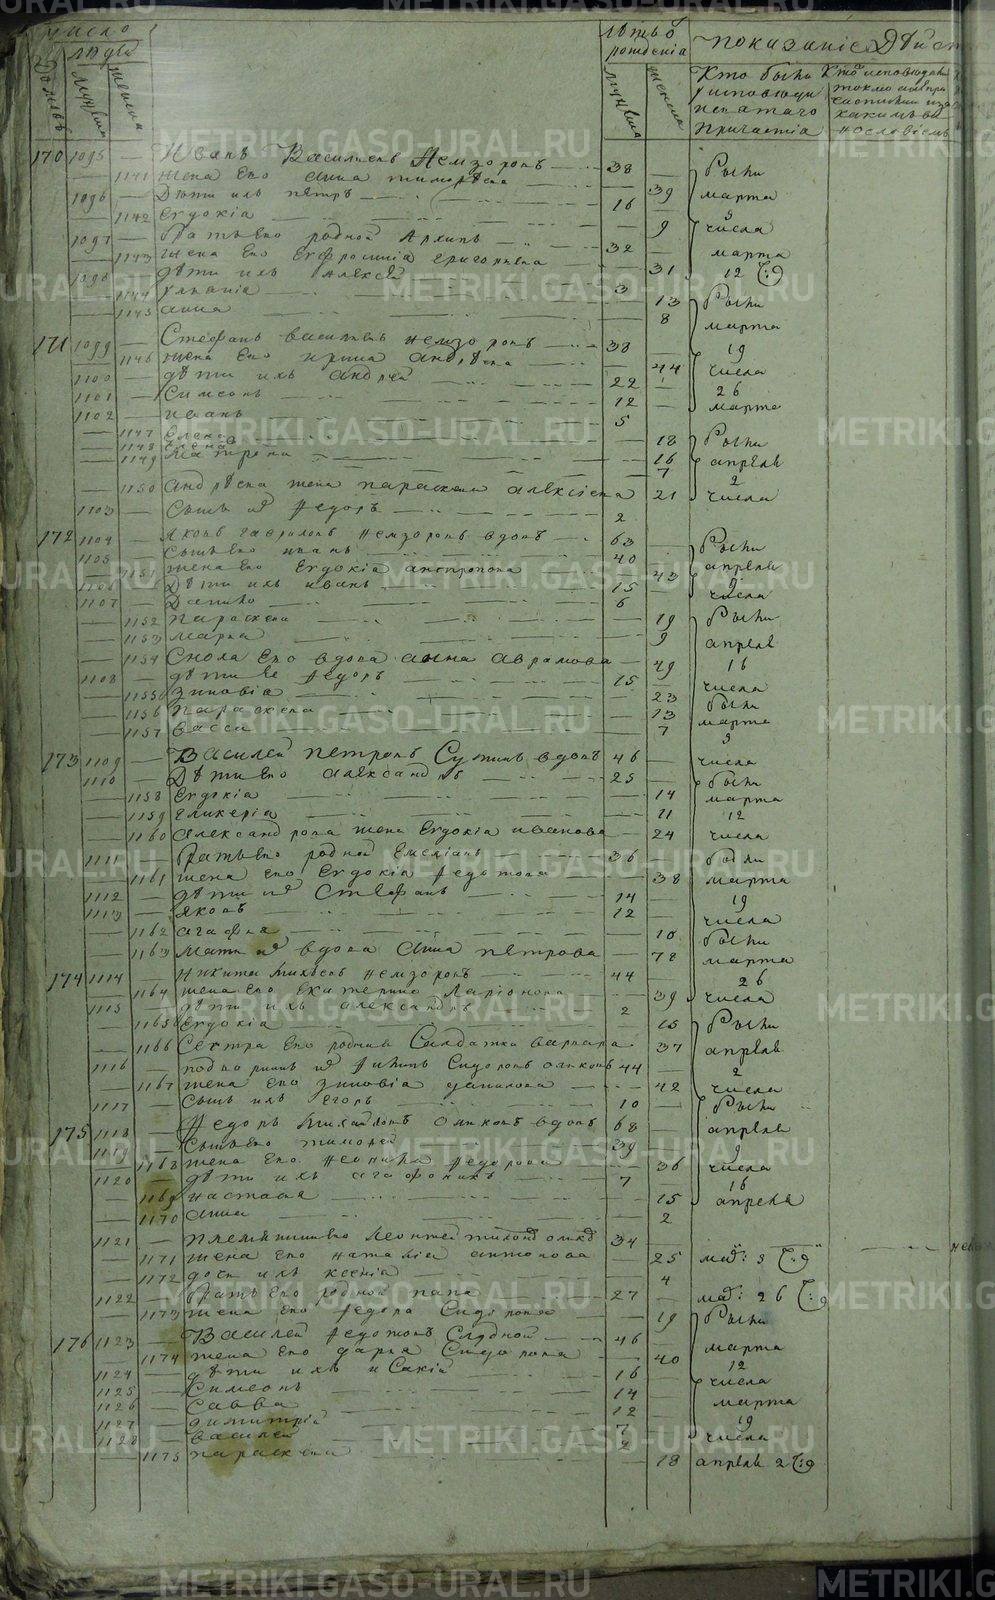 число
людей
домовъ
мужска
женска
лѣтъ ѿ рожденія
мужска
женска
показаніе Дѣйст
Кто были у исповѣди и святаго причастія
Кто исповѣдал токмо а не при частился и за какимъ ви нословіемъ
170 1095 — Иванъ Васильевъ Немзоровъ 38 были
— 1141 жена его анна тимофѣева 39 марта
1096 — Дѣти ихъ петръ 16 5
— 1142 Евдокія 9 числа
1097 — братъ его родной Архипъ 32 марта
— 1143 жена его Евфросинія григорьева 31 12 Ч:
1098 — дѣти ихъ алексей 3
— 1144 ульянія 13 были
— 1145 анна 8 марта
171 1099 — Стефанъ васильевъ немзоровъ 38 19
— 1146 жена его ирина андрѣева 44 числа
1100 — дѣти ихъ андрей 22 26
1101 — Симеонъ 12 марта
1102 — иванъ 5
— 1147 Елена 18 были
— 1148 Елена 16 апрѣля
— 1149 Матрена 7 2
— 1150 андрѣева жена параскева алексіева 21 числа
1103 — сынъ ихъ федоръ 2
172 1104 — яковъ гавриловъ немзоровъ вдовъ 63 были
1105 — сынъ его иванъ 40 апрѣля
— 1151 жена его Евдокія антропова 43 9
1106 — дѣти ихъ иванъ 15 числа
1107 — Данило 6
— 1152 параскева 19 были
— 1153 марѳа 9 апрѣля
— 1154 Сноха его вдова анна аврамова 49 16
1108 — дѣти ее федоръ 15 числа
— 1155 зиновія 23 были
— 1156 параскева 13 марта
— 1157 васса 7 5
173 1109 — Василей петровъ вдовъ 46 числа
1110 — Дѣти его александръ 25 были
— 1158 Евдокія 14 марта
— 1159 гликерія 11 12
— 1160 александрова жена Евдокія иванова 24 числа
1111 — братъ его родной Емеліанъ 36 были
— 1161 жена его Евдокія федотова 38 марта
1112 — дѣти ихъ Стефанъ 14 19
1113 — яковъ 12 числа
— 1162 агафья 10 были
— 1163 мать ихъ вдова анна петрова 78 марта
174 1114 — никита михѣевъ немзоровъ 44 26
— 1164 жена его Екатерина Ларіонова 39 числа
1115 — дѣти ихъ александръ 2
— 1165 Евдокія 15 были
— 1166 Сестра его родная Салдатка варвара 37 апрѣля
1116 — Сидоровъ 44 2
— 1167 жена его зиновія данилова 42 числа
1117 — сынъ ихъ Егоръ 10 были
175 1118 — Федоръ михайловъ вдовъ 68 апрѣля
1119 — сынъ его тимофей 39 9
— 1168 жена его федорова 36 числа
1120 — дѣти ихъ агафоникъ 7 16
— 1169 настасья 15 апреля
— 1170 анна 2
1121 — племянникъ его леонтей 34
— 1171 жена его наталія антонова 25 3
— 1172 дочь ихъ ксенія 4
1122 — братъ его родной 27 26
— 1173 жена его федора Сидорова 19 были
176 1123 — Василей федотовъ 46 марта
— 1174 жена его дарья Сидорова 40 12
1124 — дѣти ихъ исакій 16 числа
1125 — Симеонъ 14 марта
1126 — Савва 12 19
1127 — димитрій 7 числа
1128 — василей 2
— 1175 параскева 18 апрѣля 2
METRIKI.GASO-URAL.RU